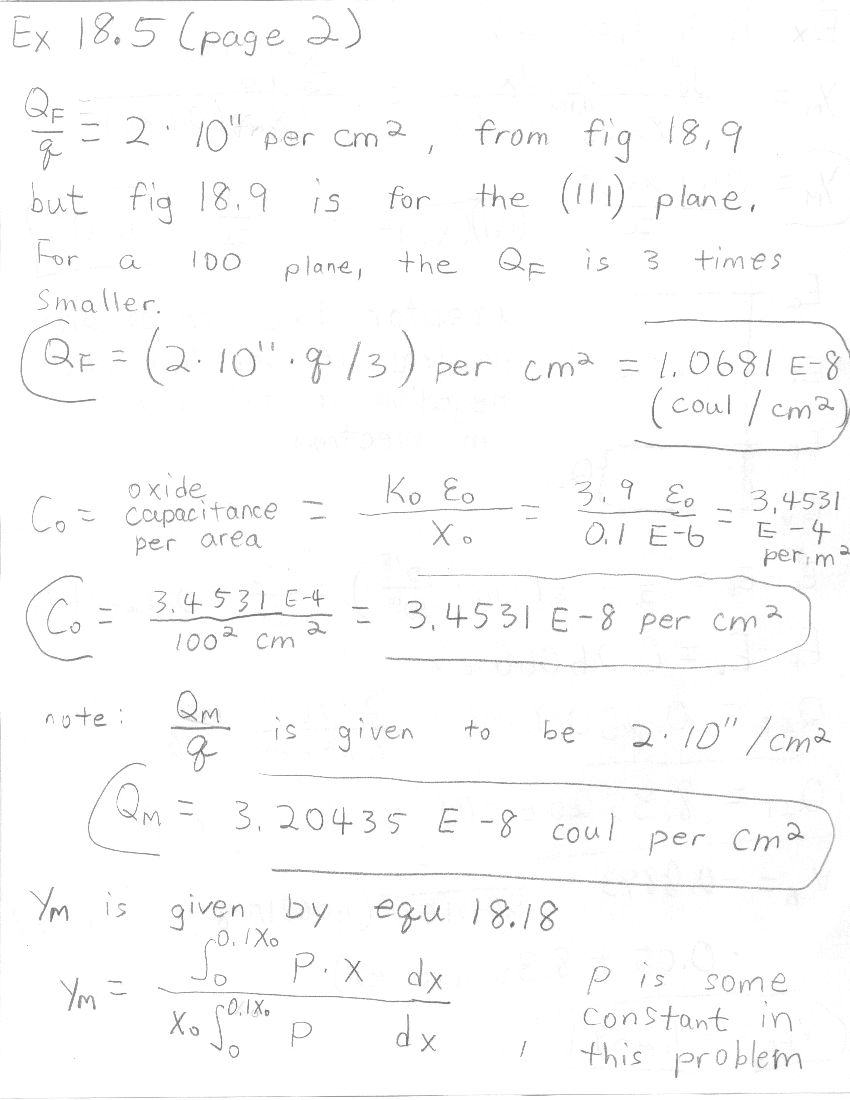 Ex 18.5 (page 2)
Q_F / q = 2 · 10^11 per cm², from fig 18.9
but fig 18.9 is for the (111) plane.
For a 100 plane, the Q_F is 3 times
smaller.
Q_F = (2 · 10^11 · q / 3) per cm² = 1.0681 E-8
(coul / cm²)
C_o = oxide capacitance per area = K_o ε_o / X_o = 3.9 ε_o / 0.1 E-6 = 3.4531 E-4 per m²
C_o = 3.4531 E-4 / 100² cm² = 3.4531 E-8 per cm²
note: Q_M / q is given to be 2 · 10^11 / cm²
Q_M = 3.20435 E-8 coul per cm²
γ_M is given by equ 18.18
γ_M = ∫_0^{0.1X_o} P · X dx / X_o ∫_0^{0.1X_o} P dx , P is some constant in this problem